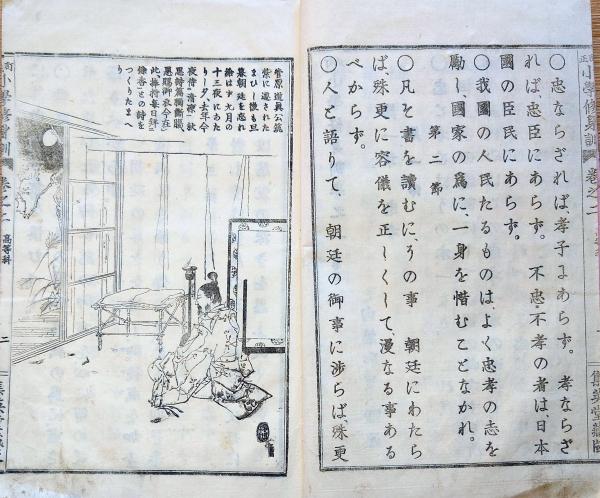 小學修身訓 卷之二
集英堂藏版
〇忠ならざれば、孝子にあらず。孝ならざ
れば、忠臣にあらず。不忠・不孝の者は、日本
國の臣民にあらず。
〇我國の人民たるものは、よく忠孝の志を
勵し、國家の爲に、一身を惜むことなかれ。
第二節
〇凡そ書を讀むに、その事 朝廷にわたら
ば、殊更に容儀を正しくして、漫なる事ある
べからず。
〇人と語りて、朝廷の御事に渉らば、殊更
菅原道眞公筑
紫に遷された
まひし後も旦
暮朝廷を忘れ
給はず九月の
十三夜にあた
り一夕去年今
夜侍清凉秋
思詩篇獨斷腸
恩賜御衣今在
此捧持毎日拜
餘香との詩を
つくりたまへ
り
小學修身訓 卷之二 高等科 二